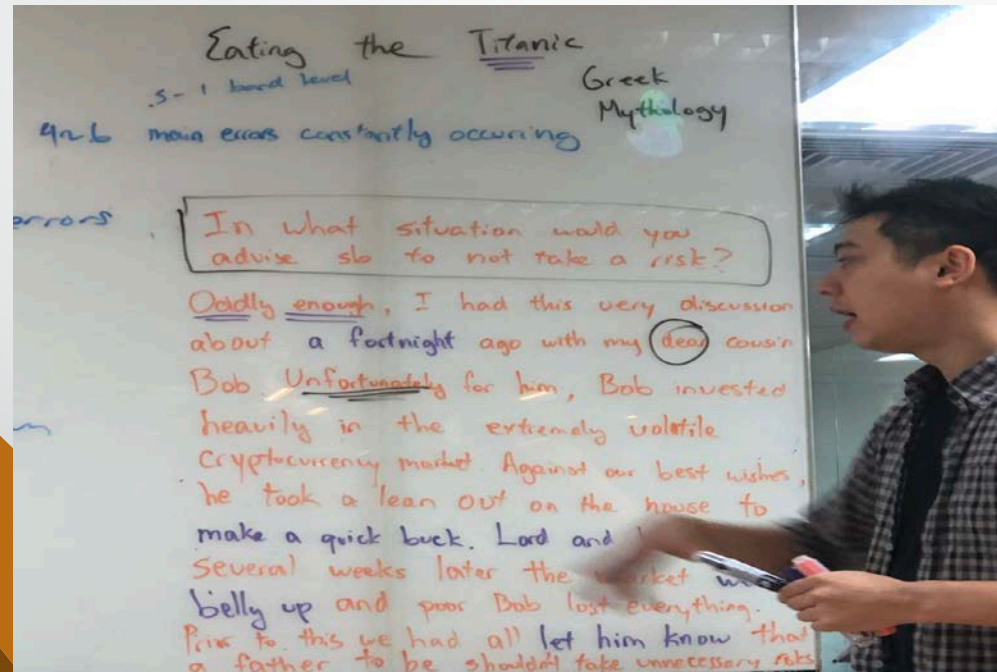 Eating the Titanic
.5 - 1 band level
Greek
Mythology
main errors constantly occuring
errors
In what situation would you
advise sb to not take a risk?
Oddly enough, I had this very discussion
about a fortnight ago with my dear cousin
Bob. Unfortunately for him, Bob invested
heavily in the extremely volatile
cryptocurrency market. Against our best wishes,
he took a lean out on the house to
make a quick buck. Lord and
Several weeks later the market
belly up and poor Bob lost everything.
Prior to this we had all let him know that
a father to be shouldn't take unnecessary risks